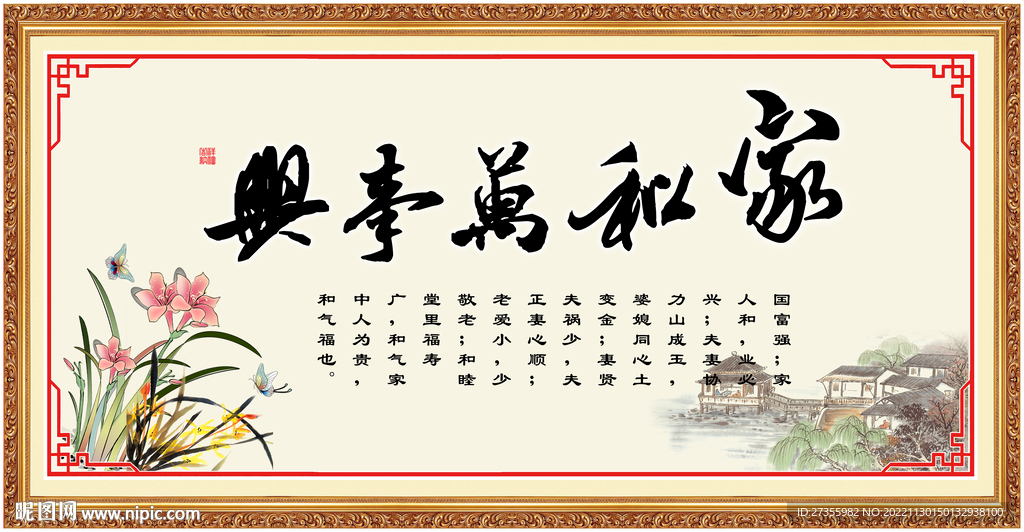 家和萬事興
国富强；家
人和，业必
兴；夫妻协
力山成玉，
婆媳同心土
变金；妻贤
夫祸少，夫
正妻心顺；
老爱小，少
敬老；和睦
堂里福寿
广，和气家
中人为贵，
和气福也。
昵图网 www.nipic.com
ID:27355982 NO:20221130150132938100